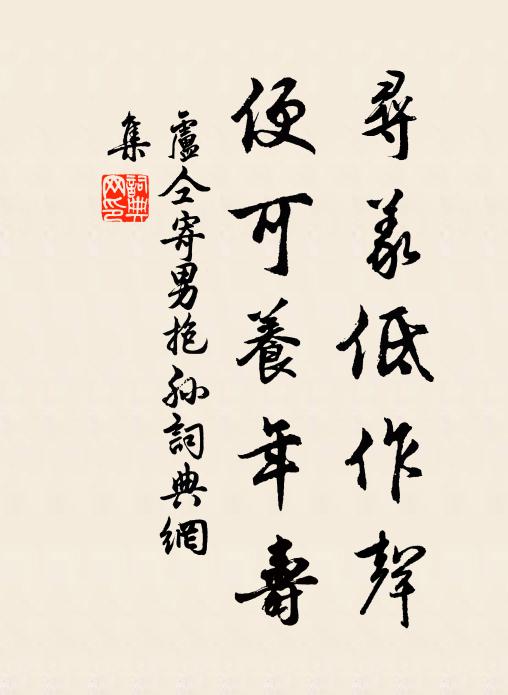 尋義低作聲
便可養年壽
盧仝寄男抱孫詞典網
集
詞典網印